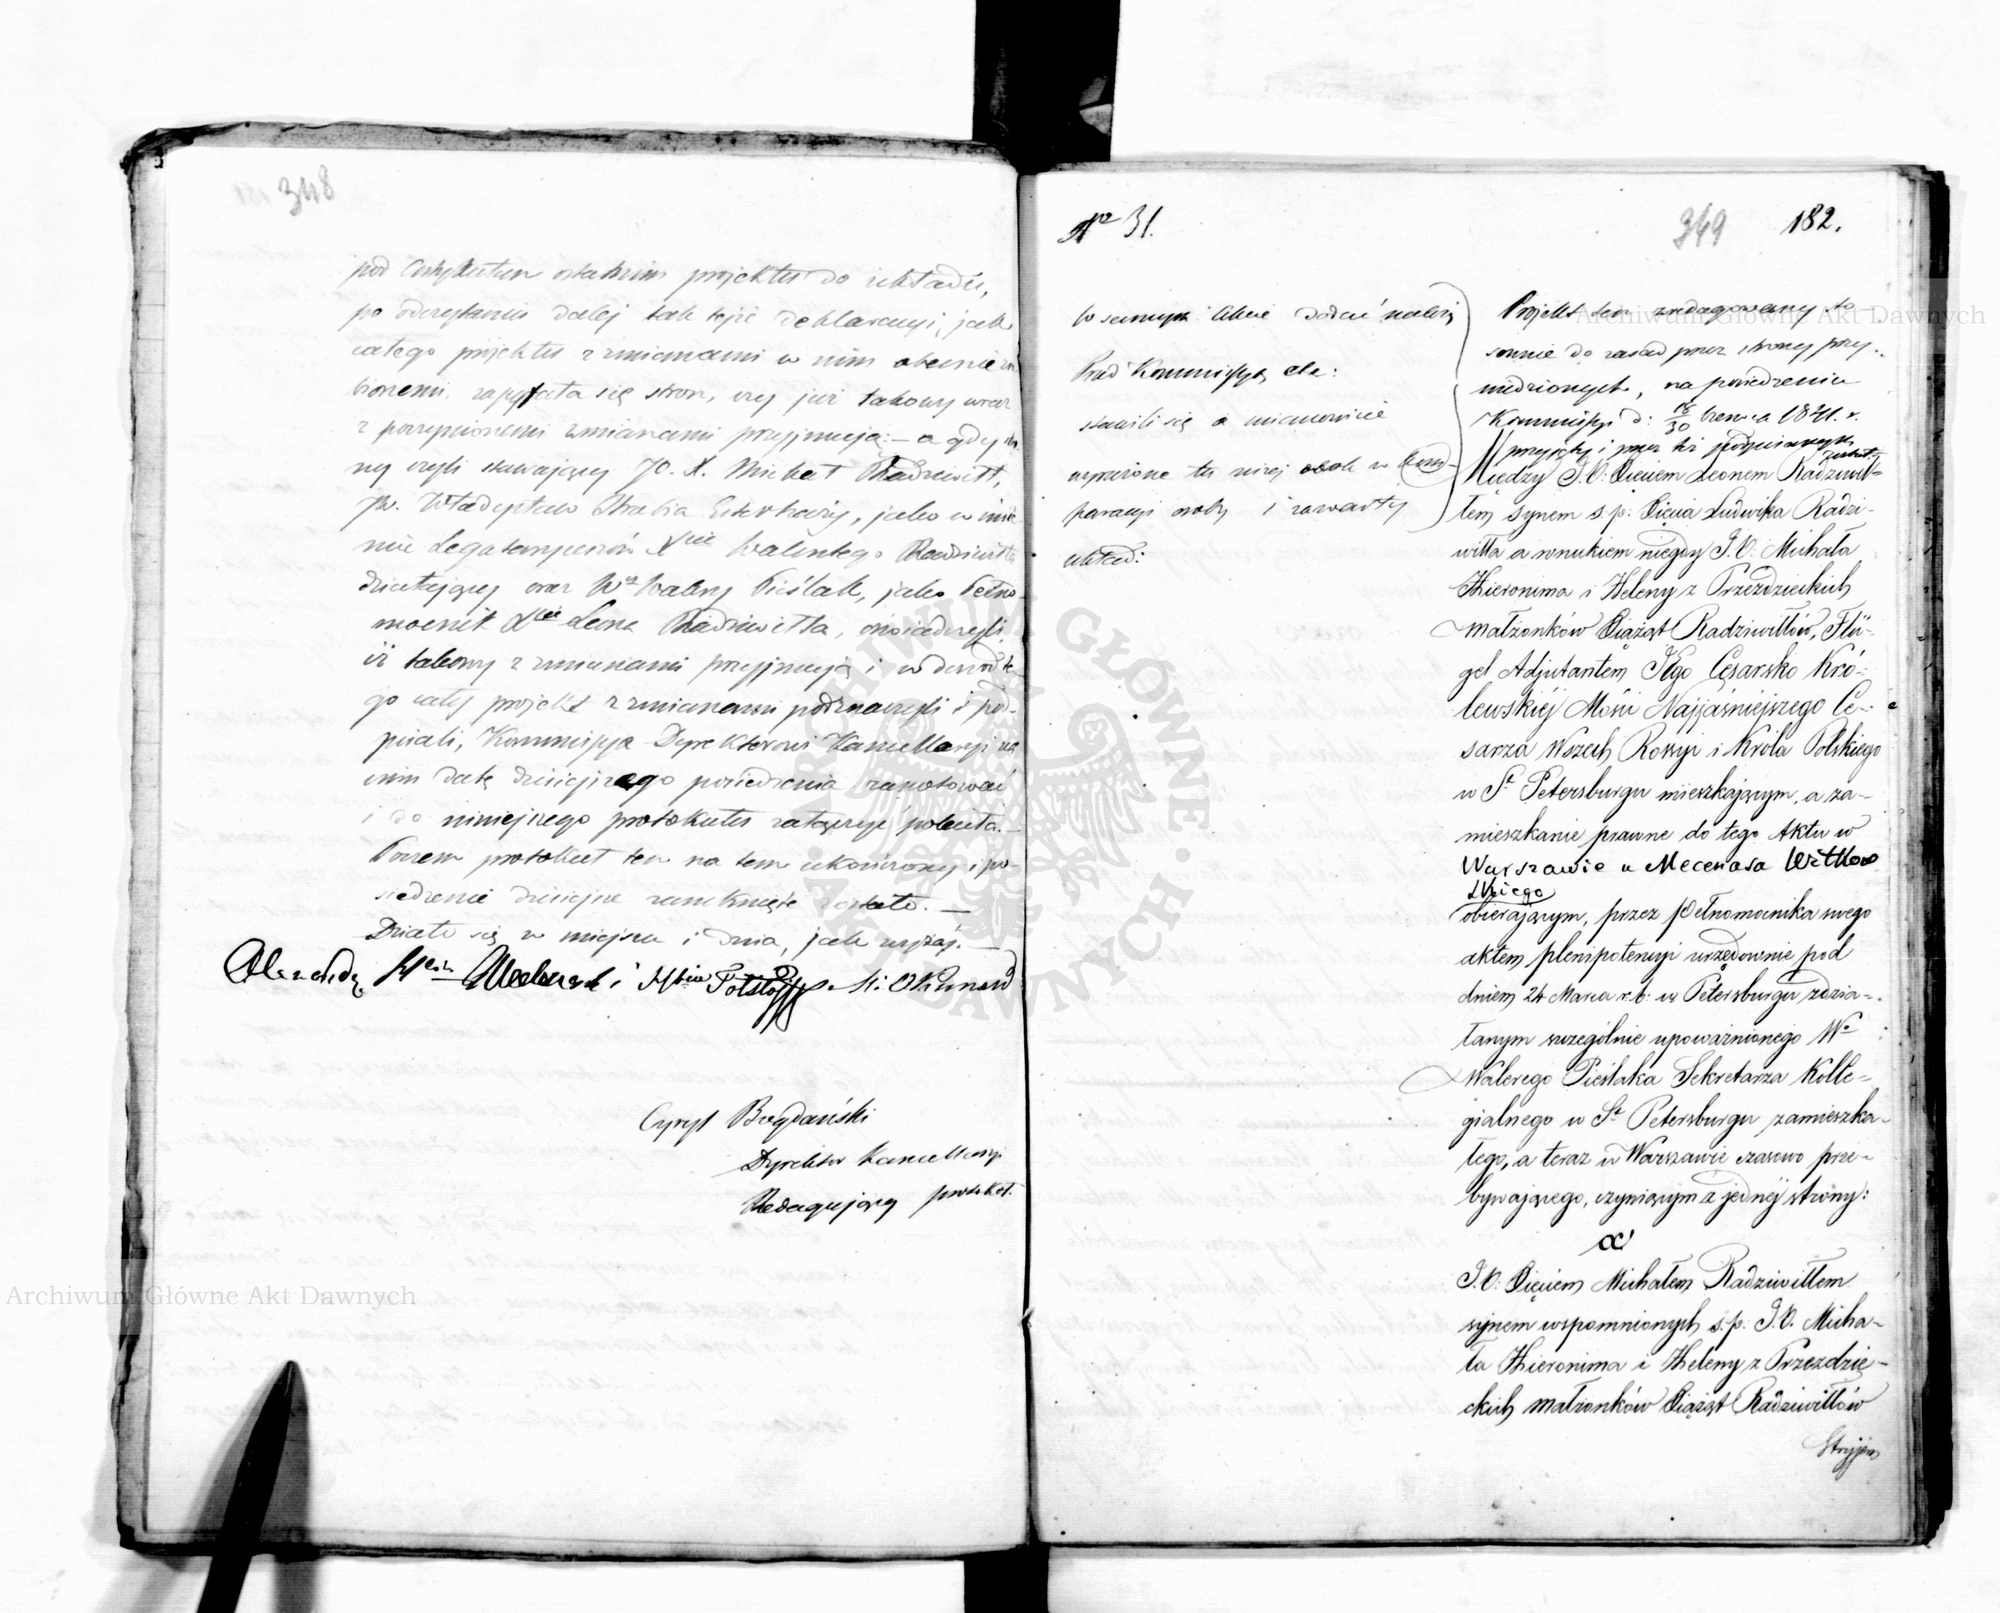 348
pod Artykułem ostatnim projektu do układu,
po odczytaniu dalej tak tejże deklaracyi, jak
całego projektu z zmianami w nim obecnie zro
bionemi, zapytała się stron, czy już takowy wraz
z poczynionemi zmianami przyjmują: — a gdy stro
ny czyli stawający JO. X. Michał Radziwiłł,
JW. Władysław Hrabia Esterhazy, jako w imie
niu Legataryuszów Xcia Walentego Radziwiłła
działający oraz Wny Walery Pieślak, jako Pełno
mocnik Xcia Leona Radziwiłła, oświadczyli,
iż takowy z zmianami przyjmują i w dowód te
go cały projekt z zmianami podznaczyli i pod-
pisali, Kommissya Dyrektorowi Kancellaryi na
nim datę dzisiejszego posiedzenia zanotować
i do niniejszego protokułu załączyć poleciła. —
Poczem protokuł ten na tem ukończony i po-
siedzenie dzisiejsze zamknięte zostało. —
Działo się w miejscu i dnia, jak wyżej. —
Cyryl Bogdański
Dyrektor Kancellaryi
Redagujący protokół.
No 31.
349 182.
w samym Akcie dodać należy
Przed Kommissyą etc:
stawili się a mianowicie
wyrażone tu niżej obok w kom-
paracyi osoby i zawarty
układ:
Projekt ten zredagowany sto-
sownie do zasad przez strony przy-
niedzionych, na posiedzeniu
Kommissyi d: 18/30 Czerwca 1841. r.
przyjęty i przez też podpisanym
został.
Między J.O: Xięciem Leonem Radziwił-
łem synem ś. p: Xięcia Ludwika Radzi-
wiłła a wnukiem niegdy J.O: Michała
Hieronima i Heleny z Przezdzieckich
małżonków Xiążąt Radziwiłłów, Flü-
gel Adjutantem Jego Cesarsko Kró-
lewskiéj Mości Najjaśniejszego Ce-
sarza Wszech Rossyi i Króla Polskiego
w St Petersburgu mieszkającym, a za-
mieszkanie prawne do tego Aktu w
Warszawie u Mecenasa Witkow
skiego
obierającym, przez Pełnomocnika swego
aktem plenipotencyi urzędownie pod
dniem 24 Marca r. b: w Petersburgu zdzia-
łanym szczególnie upoważnionego Wo
Walerego Pieślaka Sekretarza Kolle-
gialnego w St Petersburgu zamieszka-
łego, a teraz w Warszawie czasowo prze-
bywającego, czyniącym z jednéj strony:
a
J.O: Xięciem Michałem Radziwiłłem
synem wspomnionych ś. p: J.O. Micha-
ła Hieronima i Heleny z Przezdzie-
ckich małżonków Xiążąt Radziwiłłów
Stryjem
Archiwum Główne Akt Dawnych
Archiwum Główne Akt Dawnych
ARCHIWUM GŁÓWNE · AKT DAWNYCH ·